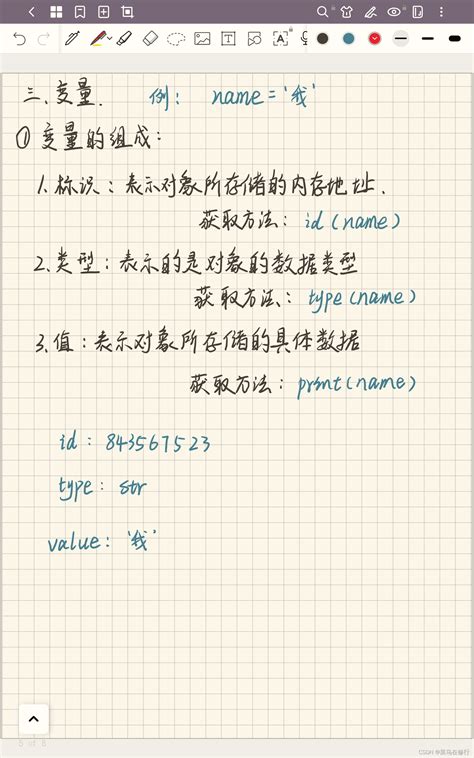 三、变量. 例: name='我'
① 变量的组成:
1.标识:表示对象所存储的内存地址.
获取方法: id(name)
2.类型:表示的是对象的数据类型
获取方法: type(name)
3.值:表示对象所存储的具体数据
获取方法: print(name)
id: 843567523
type: str
value: '我'
5 of 8
CSDN @菜鸟在修行